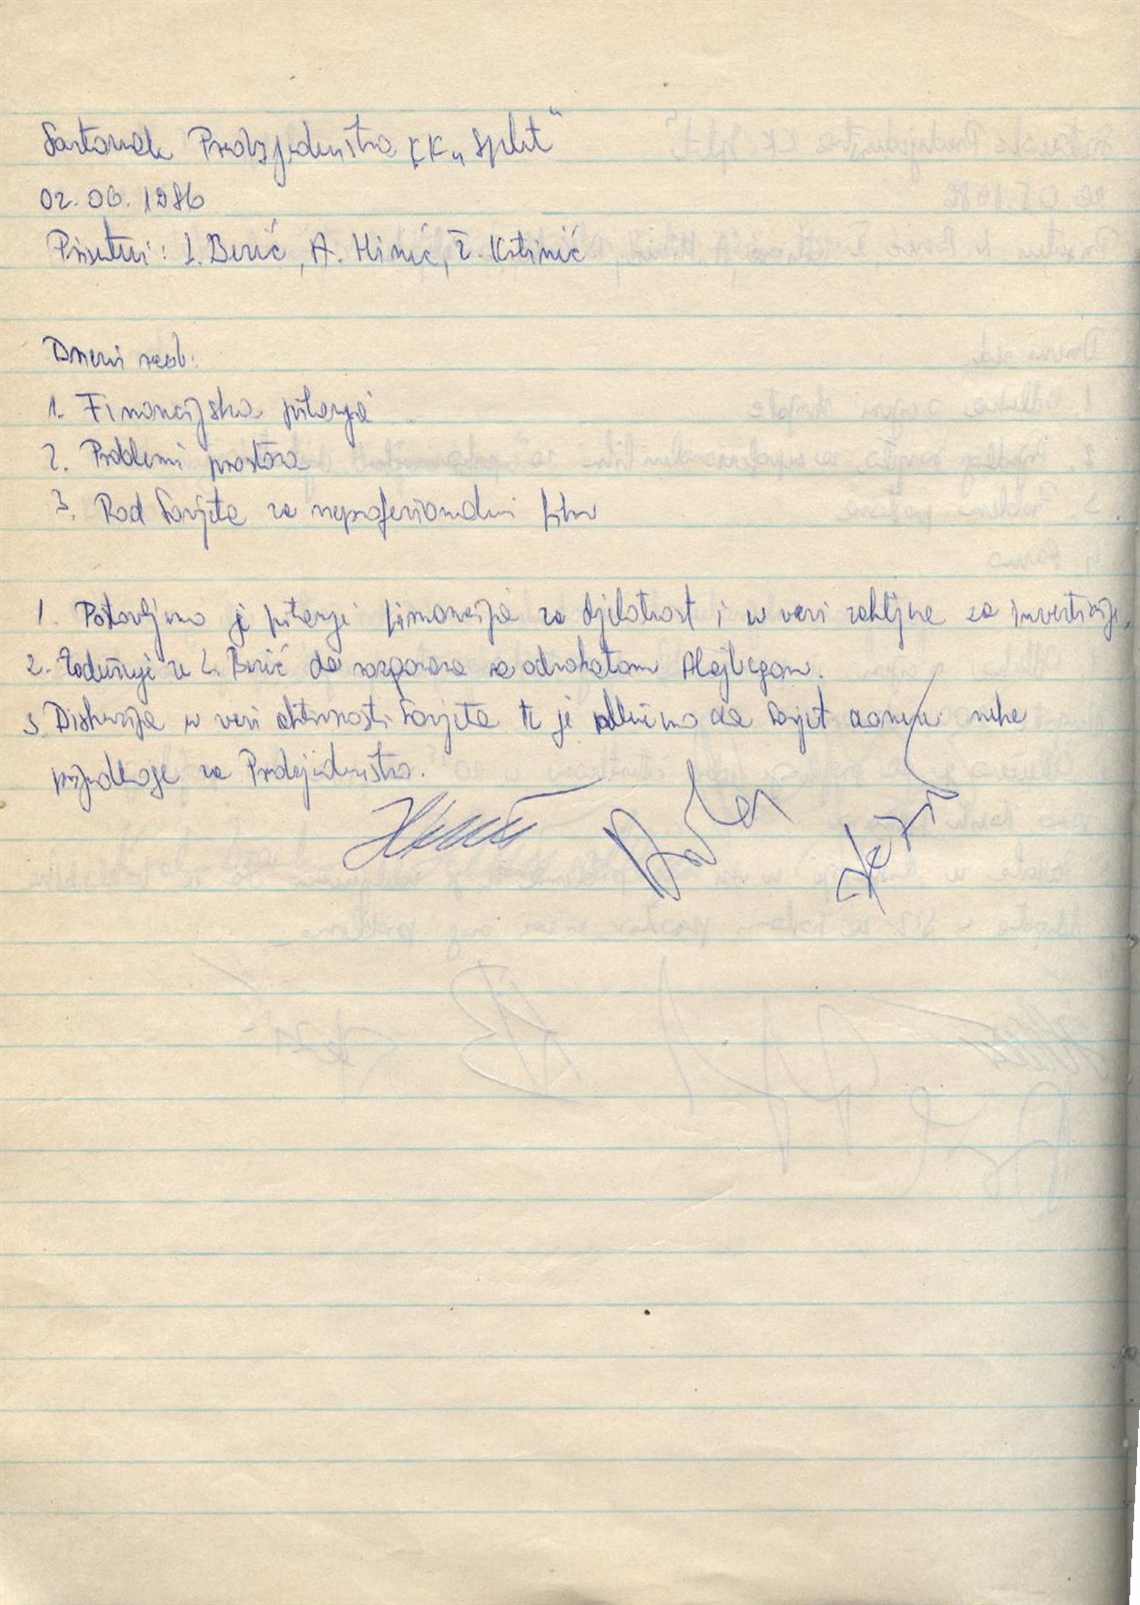 Sastanak Predsjedništva KK „Split“
02. 06. 1986
Prisutni: L. Berić, A. Himić, Ž. Kitinić
Dnevni red:
1. Financijska pitanja
2. Problemi prostora
3. Rad Savjeta za neprofesionalni film
1. Postavljeno je pitanje financija za djelatnost i u vezi zahtjeva za investicije.
2. Zadužuje se L. Berić da razgovara sa advokatom Alajbegom.
3. Diskusija u vezi aktivnosti Savjeta te je odlučeno da Savjet donese neke
prijedloge za Predsjedništvo.